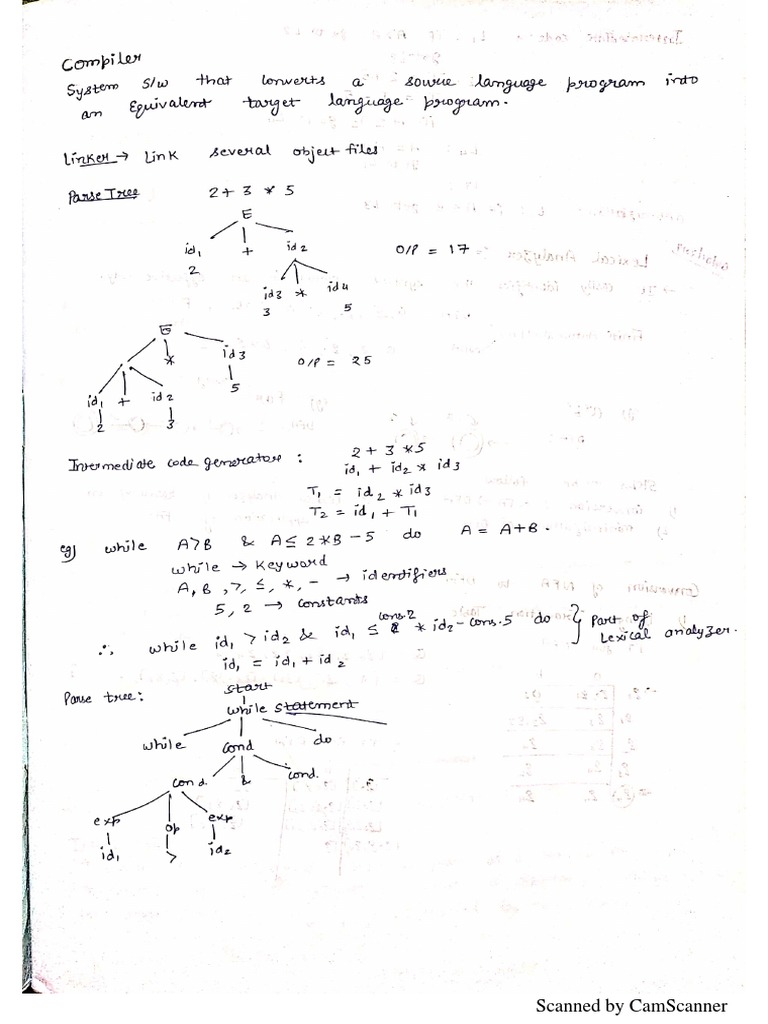 Compiler
System S/w that converts a source language program into
an Equivalent target language program.
Linker → Link several object files
Parse Tree 2 + 3 * 5
E
id1 + id2
2
O/P = 17
id3 * id4
3 5
E
* id3
O/P = 25
5
id1 + id2
2 3
Intermediate code generator : 2 + 3 * 5
id1 + id2 * id3
T1 = id2 * id3
T2 = id1 + T1
eg) while A>B & A≤ 2*B-5 do A = A+B.
while → Keyword
A, B, >, ≤, *, - → identifiers
5, 2 → constants
∴ while id1 > id2 & id1 ≤ cons.2 * id2 - cons.5 do } Part of
id1 = id1 + id2
Lexical analyzer.
Parse tree: start
while statement
while cond do
cond. & cond.
exp op exp
id1 > id2
Scanned by CamScanner